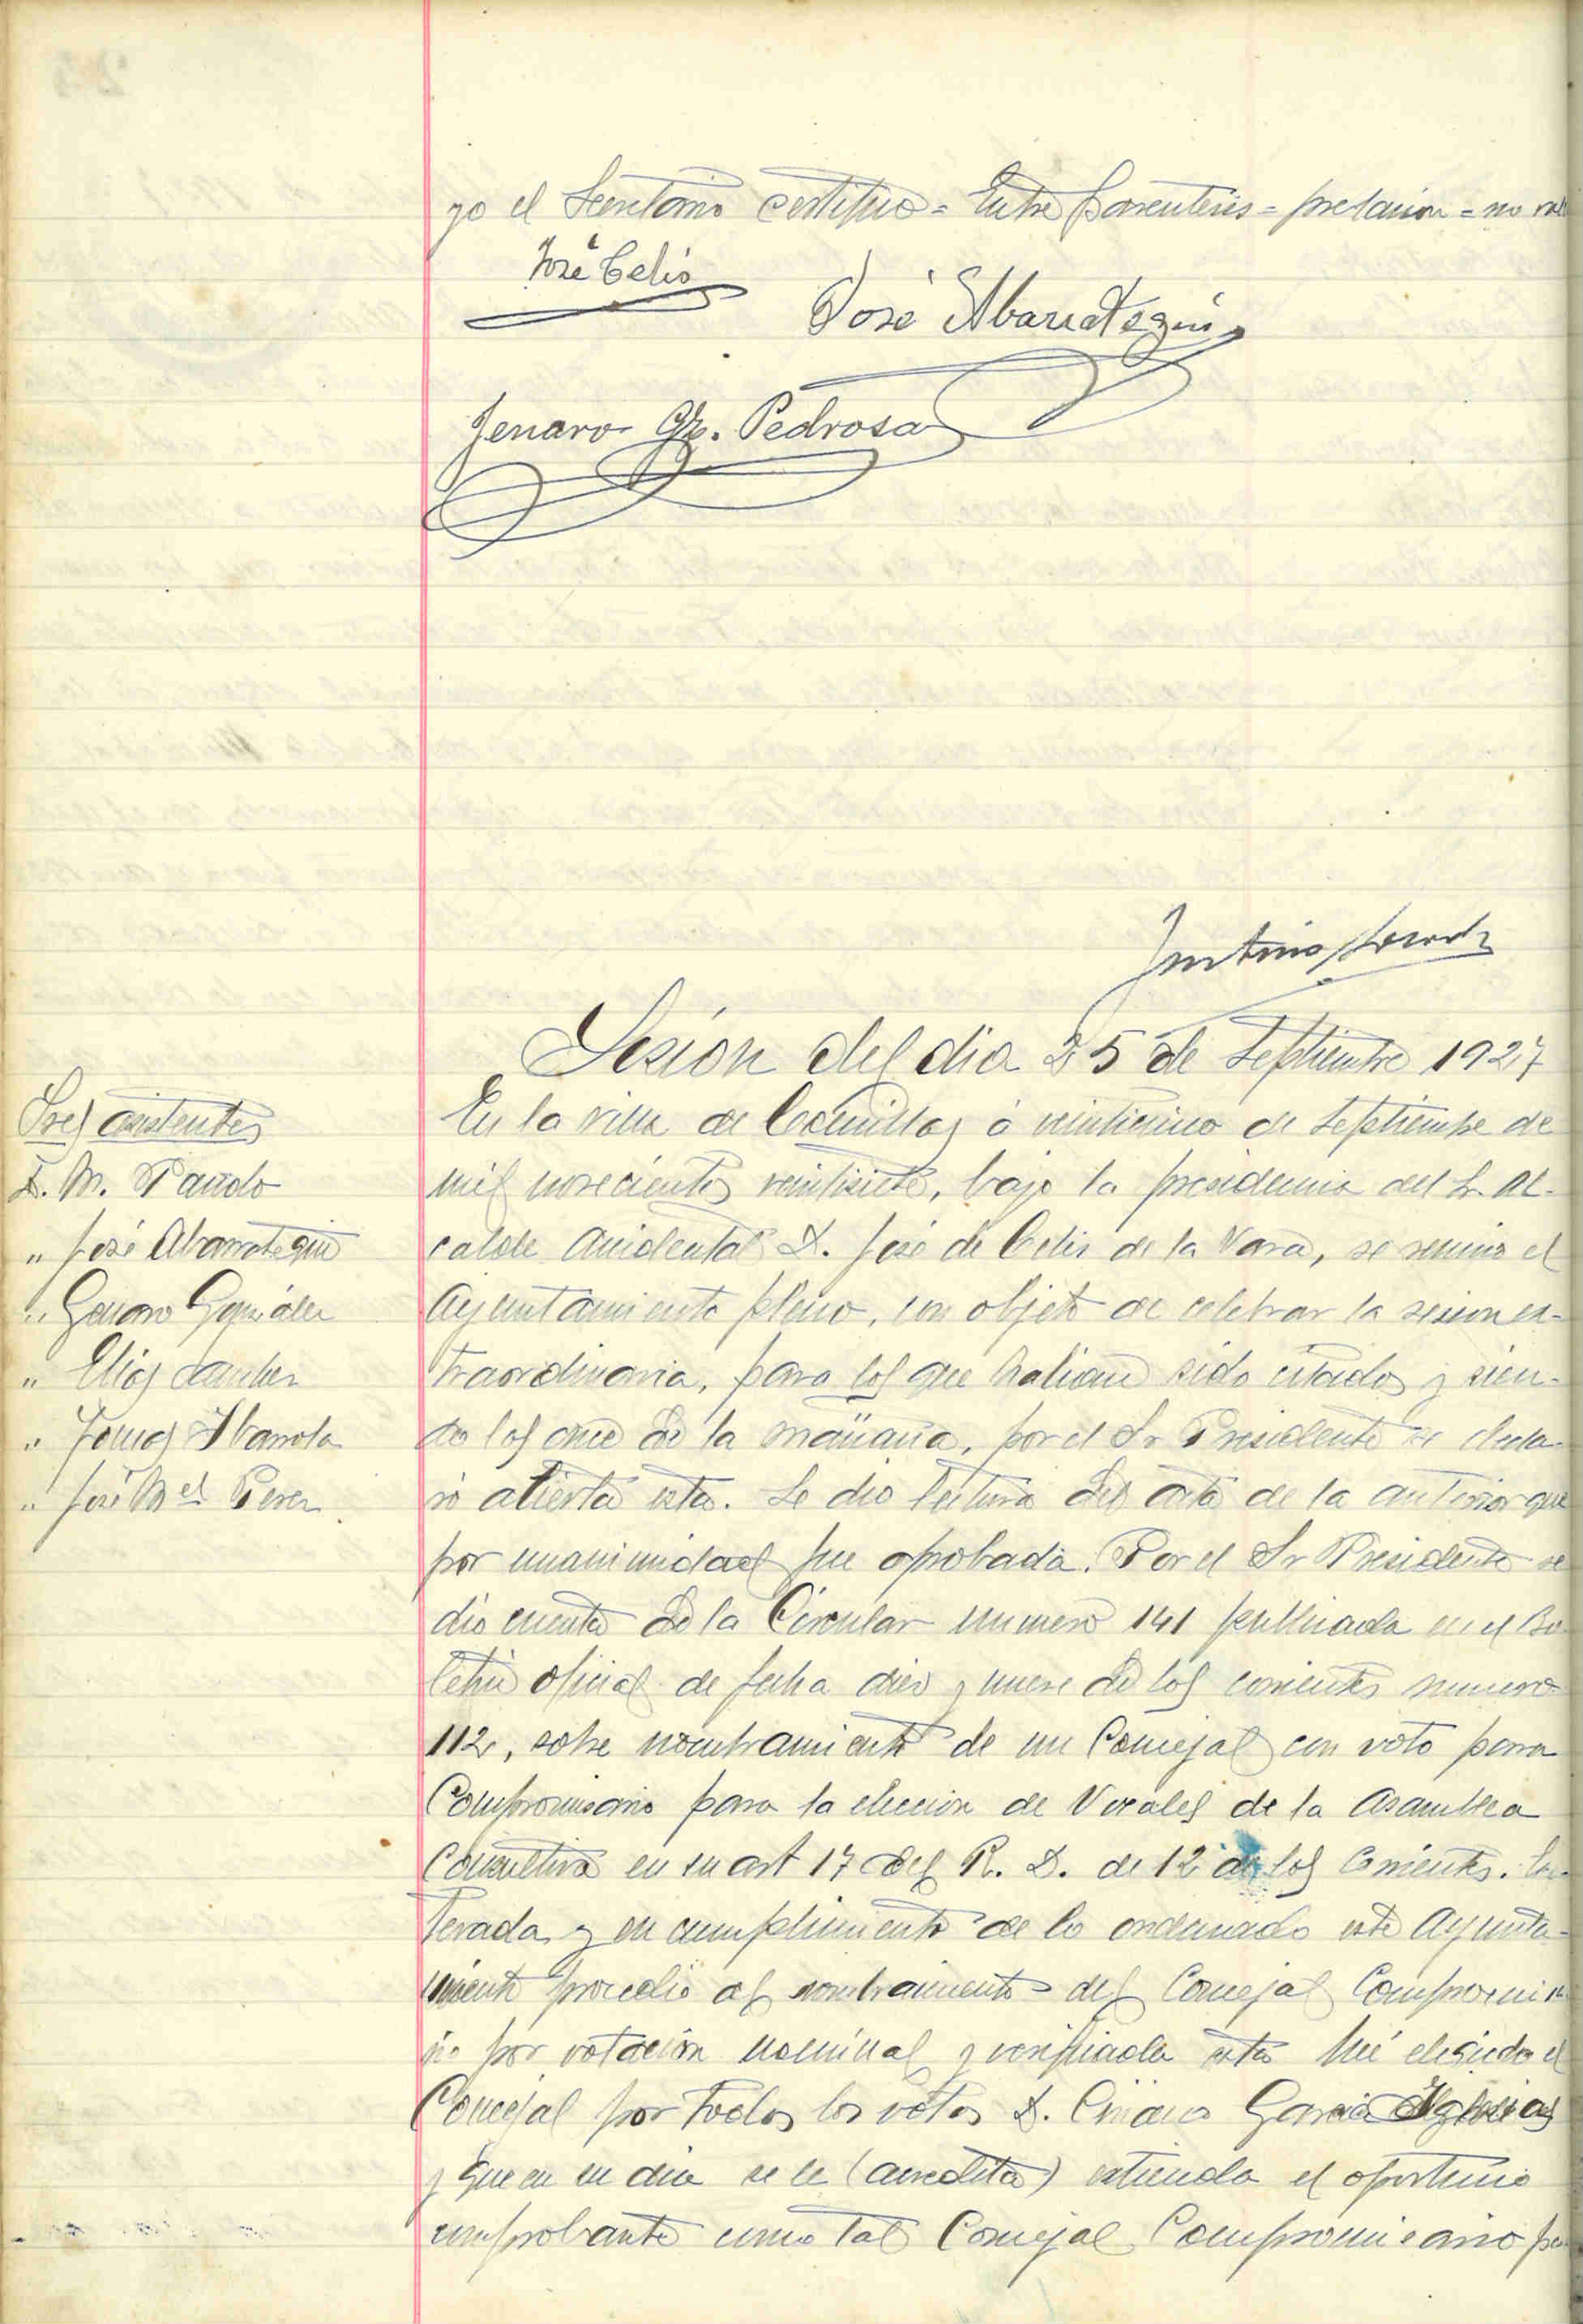 yo el Secretario certifico = Entre parentesis = prelacion = no vale
José Celis
José Abarrategui
Jenaro Gz. Pedrosa
Sesion del dia 25 de Septiembre 1927
Sres asistentes
D. M. Pando
" José Abarrategui
" Genaro Gonzalez
" Elias Sanchez
" Tomas Ibarrola
" José Mel Perez
En la villa de Comillas á veinticinco de Septiembre de
mil novecientos veintisiete, bajo la presidencia del Sr. Al-
calde Accidental D. José de Celis de la Vara, se reunio el
Ayuntamiento pleno, con objeto de celebrar la sesion ex-
traordinaria, para los que habian sido citados y sien-
do las once de la mañana, por el Sr Presidente se decla-
ró abierta esta. Se dio lectura del acta de la anterior que
por unanimidad fue aprobada. Por el Sr Presidente se
dio cuenta de la Circular numero 141 publicada en el Bo-
letin oficial de fecha diez y nueve de los corrientes numero
112, sobre nombramiento de un Concejal con voto para
Compromisario para la eleccion de Vocales de la Asamblea
Consultiva en su art 17 del R. D. de 12 de los corrientes. En-
terada y en cumplimiento de lo ordenado este Ayunta-
miento procedió al nombramiento del Concejal Compromisa-
rio por votación nominal y verificada esta fué elegido el
Concejal por todos los votos D. Garcia Iglesias
y que en su dia se le (acredita) extienda el oportuno
comprobante como tal Concejal Compromisario pa